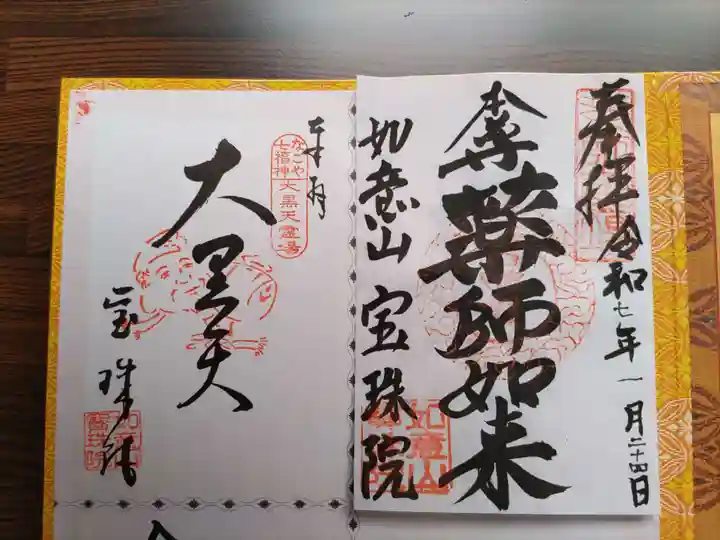 奉拝
令和七年一月二十四日
本尊薬師如来
如意山宝珠院
如意山
奉拝
なごや
七福神
大黒天霊場
大黒天
宝珠院